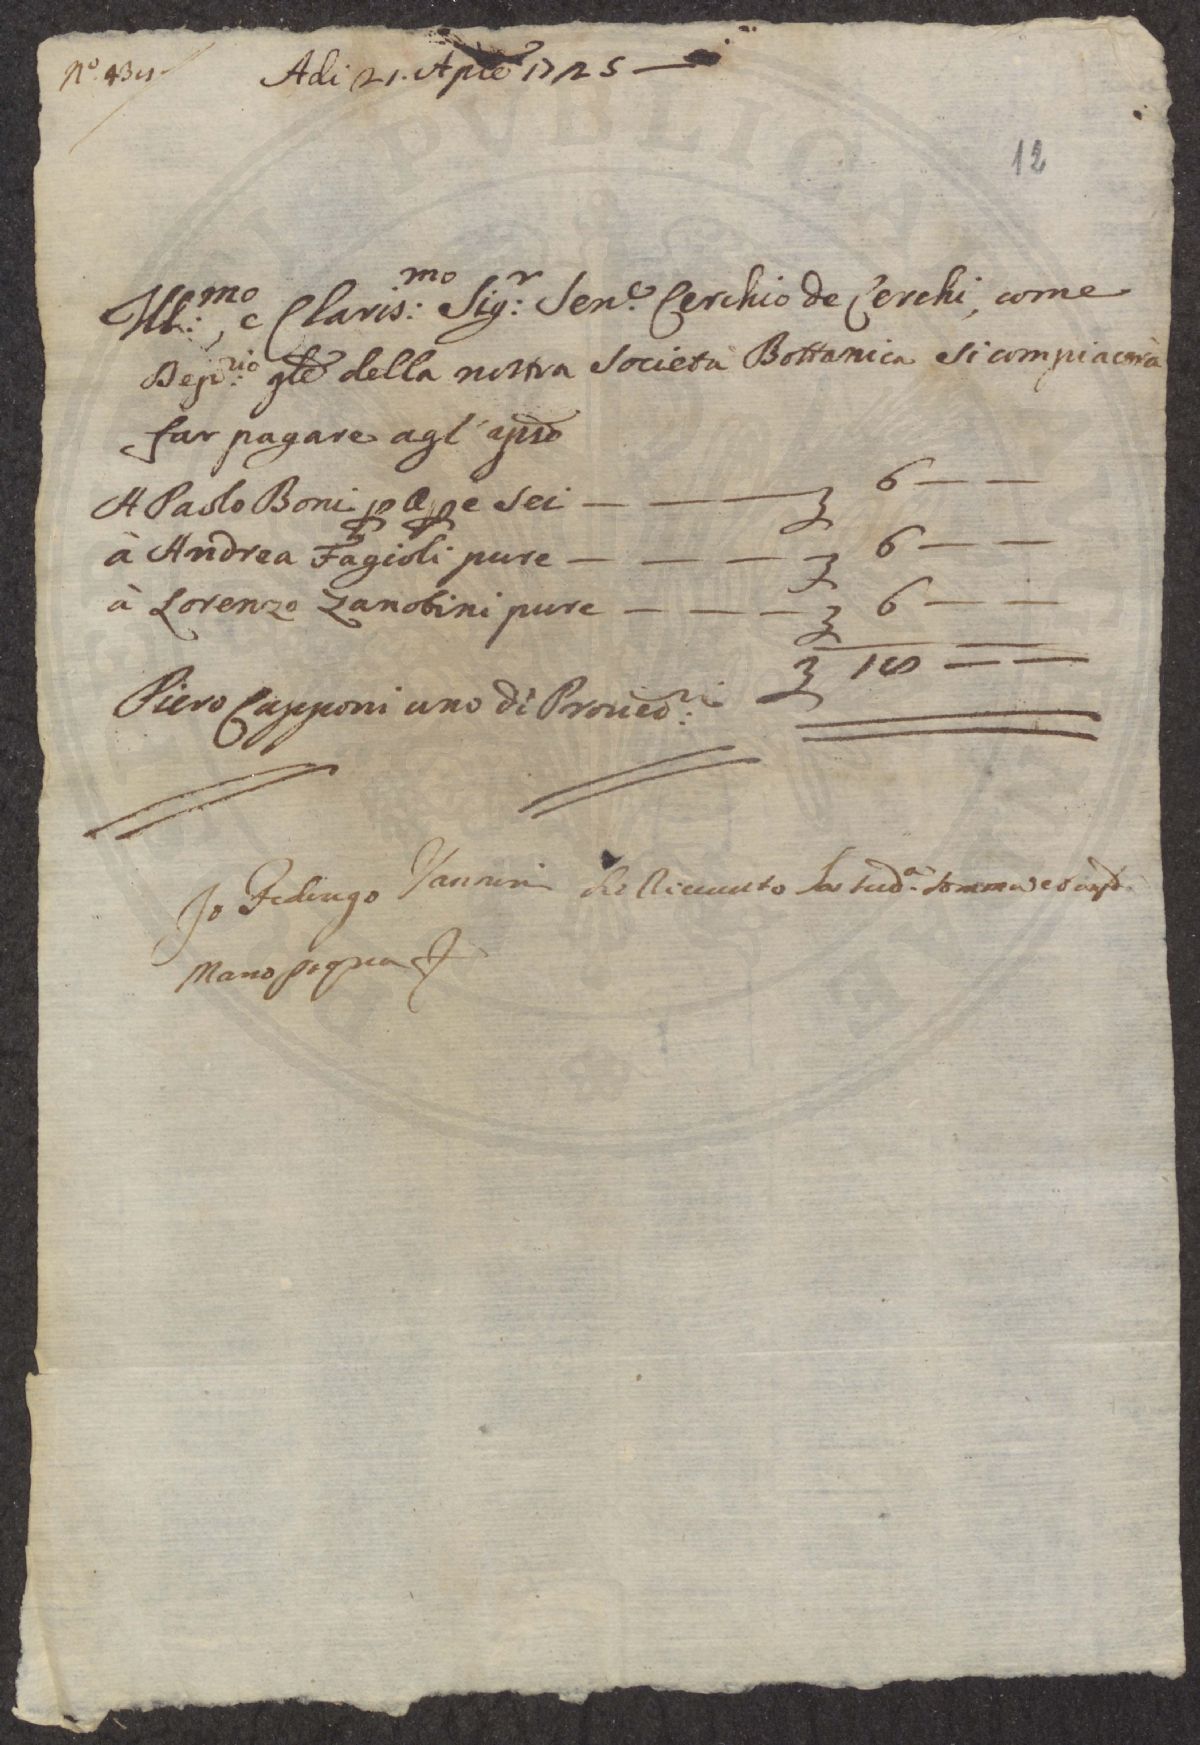 Adi 21. Aple 1725
12
Ill:mo, e Claris:mo Sig:r Sen:e Cerchio de Cerchi, come
Dep:rio gle della nostra Società Bottanica si compiacerà
far pagare agl'
A Paolo Boni sei — — — 6 — —
à Andrea Fagioli pure — — — — 6 — —
à Lorenzo Zanobini pure — — — — 6 — —
18 — —
Piero Capponi uno di Proved:ri
Io Vannini Riceuto la sud:a somma
Mano propria